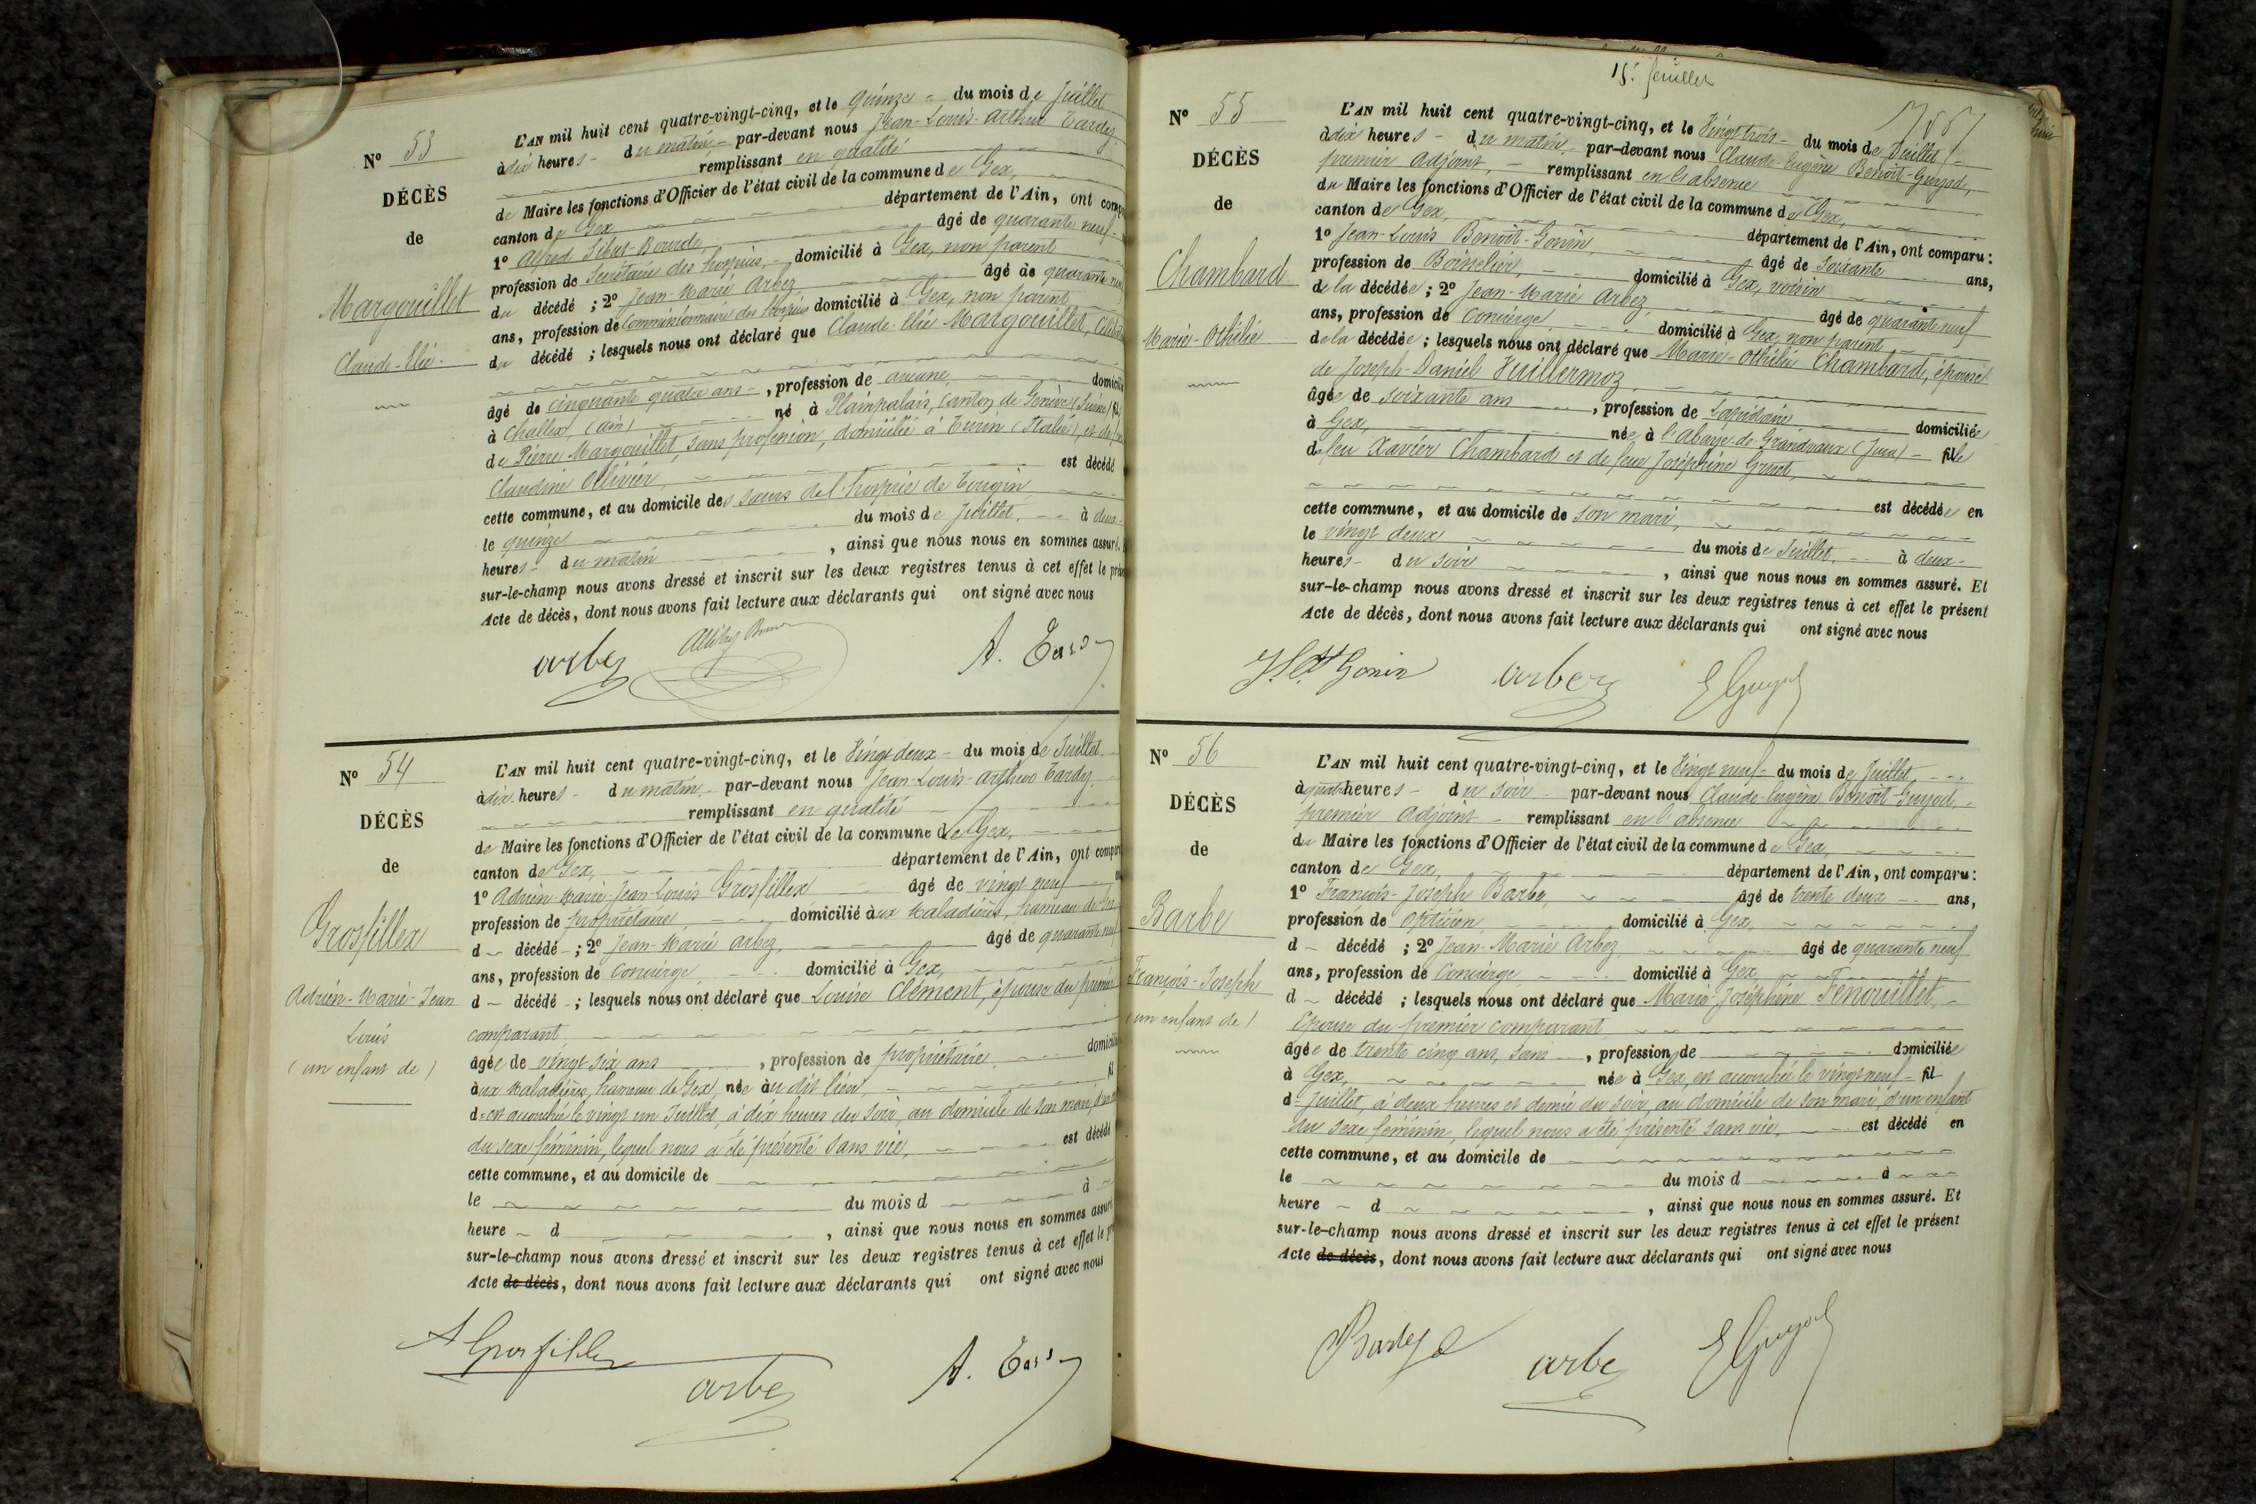 N° 53
DÉCÈS
de
Margouillet
Claude-Elie
L'AN mil huit cent quatre-vingt-cinq, et le quinze du mois de Juillet
à dix heures du matin par-devant nous Jean-Louis-Arthur Tardy
remplissant en qualité
de Maire les fonctions d'Officier de l'état civil de la commune de Gex,
canton de Gex département de l'Ain, ont comparu
1° Alfred Sibut-Bourde âgé de quarante neuf
profession de Secrétaire des hospices, domicilié à Gex, non parent
du décédé ; 2° Jean-Marie Arbez âgé de quarante neuf
ans, profession de Commissionnaire des hospices domicilié à Gex, non parent
du décédé ; lesquels nous ont déclaré que Claude-Elie Margouillet, Célibat
âgé de cinquante quatre ans, profession de aucune domicilié
à Challex, (Ain) né à Plainpalais, canton de Genève (Suisse) fils
de Pierre Margouillet, sans profession, domicilié à Turin (Italie), et de
Claudine Ollivier, est décédé
cette commune, et au domicile des sœurs de l'hospice de Tougin
le quinze du mois de Juillet, à deux
heures du matin, ainsi que nous nous en sommes assuré.
sur-le-champ nous avons dressé et inscrit sur les deux registres tenus à cet effet le prés
Acte de décès, dont nous avons fait lecture aux déclarants qui ont signé avec nous
arbez A. Tardy
N° 54
DÉCÈS
de
Grosfillex
Adrien-Marie-Jean
Louis
(un enfant de)
L'AN mil huit cent quatre-vingt-cinq, et le Vingt deux du mois de Juillet
à dix heures du matin par-devant nous Jean-Louis-Arthur Tardy
remplissant en qualité
de Maire les fonctions d'Officier de l'état civil de la commune de Gex,
canton de Gex, département de l'Ain, ont comparu
1° Adrien-Marie-Jean-Louis Grosfillex âgé de vingt neuf
profession de propriétaire domicilié aux Maladières, hameau de Gex
d décédé ; 2° Jean-Marie Arbez âgé de quarante neuf
ans, profession de Concierge domicilié à Gex,
d décédé ; lesquels nous ont déclaré que Louise Clément, épouse du premier
comparant
âgée de vingt six ans, profession de propriétaire domicilié
aux Maladières, hameau de Gex, née au dit lieu, fil
d est accouchée le vingt un Juillet, à dix heures du soir, au domicile de son mari,
du sexe féminin, lequel nous a été présenté sans vie, est décédé
cette commune, et au domicile de
le du mois d à
heure d, ainsi que nous nous en sommes assuré
sur-le-champ nous avons dressé et inscrit sur les deux registres tenus à cet effet le pr
Acte de décès, dont nous avons fait lecture aux déclarants qui ont signé avec nous
A Grosfillex arbez A. Tardy
15e feuillet
N° 55
DÉCÈS
de
Chambard
Marie-Othélie
L'AN mil huit cent quatre-vingt-cinq, et le Vingt trois du mois de Juillet
à dix heures du matin, par-devant nous Claude-Eugène Benoît-Guyod,
premier Adjoint, remplissant en l'absence
du Maire les fonctions d'Officier de l'état civil de la commune de Gex,
canton de Gex, département de l'Ain, ont comparu :
1° Jean-Louis Benoît-Gonin, âgé de soixante ans,
profession de Boisselier, domicilié à Gex, voisin
de la décédée ; 2° Jean-Marie Arbez, âgé de quarante neuf
ans, profession de Concierge domicilié à Gex, non parent
de la décédée ; lesquels nous ont déclaré que Marie-Othélie Chambard, épouse
de Joseph-Daniel Vuillermoz,
âgée de soixante ans, profession de Lapidaire domiciliée
à Gex, née à l'Abaye-de-Grandvaux (Jura) fille
de feu Xavier Chambard et de feue Joséphine Gruet,
est décédée en
cette commune, et au domicile de son mari,
le vingt deux du mois de Juillet, à deux
heures du soir, ainsi que nous nous en sommes assuré. Et
sur-le-champ nous avons dressé et inscrit sur les deux registres tenus à cet effet le présent
Acte de décès, dont nous avons fait lecture aux déclarants qui ont signé avec nous
Gonin arbez E Guyod
N° 56
DÉCÈS
de
Barbe
François-Joseph
(un enfant de)
L'AN mil huit cent quatre-vingt-cinq, et le Vingt neuf du mois de Juillet,
à quatre heures du soir par-devant nous Claude-Eugène Benoît-Guyod,
premier Adjoint remplissant en l'absence
du Maire les fonctions d'Officier de l'état civil de la commune de Gex,
canton de Gex, département de l'Ain, ont comparu :
1° François-Joseph Barbe, âgé de trente deux ans,
profession de opticien domicilié à Gex,
d décédé ; 2° Jean-Marie Arbez âgé de quarante neuf
ans, profession de Concierge domicilié à Gex
d décédé ; lesquels nous ont déclaré que Marie-Joséphine Fenouillet,
Epouse du premier comparant
âgée de trente cinq ans, sans, profession de domiciliée
à Gex, née à Gex, est accouchée le vingt neuf fil
d Juillet, à deux heures et demie du soir, au domicile de son mari, d'un enfant
du sexe féminin, lequel nous a été présenté sans vie, est décédé en
cette commune, et au domicile de
le du mois d à
heure d, ainsi que nous nous en sommes assuré. Et
sur-le-champ nous avons dressé et inscrit sur les deux registres tenus à cet effet le présent
Acte de décès, dont nous avons fait lecture aux déclarants qui ont signé avec nous
Barbe arbez E Guyod